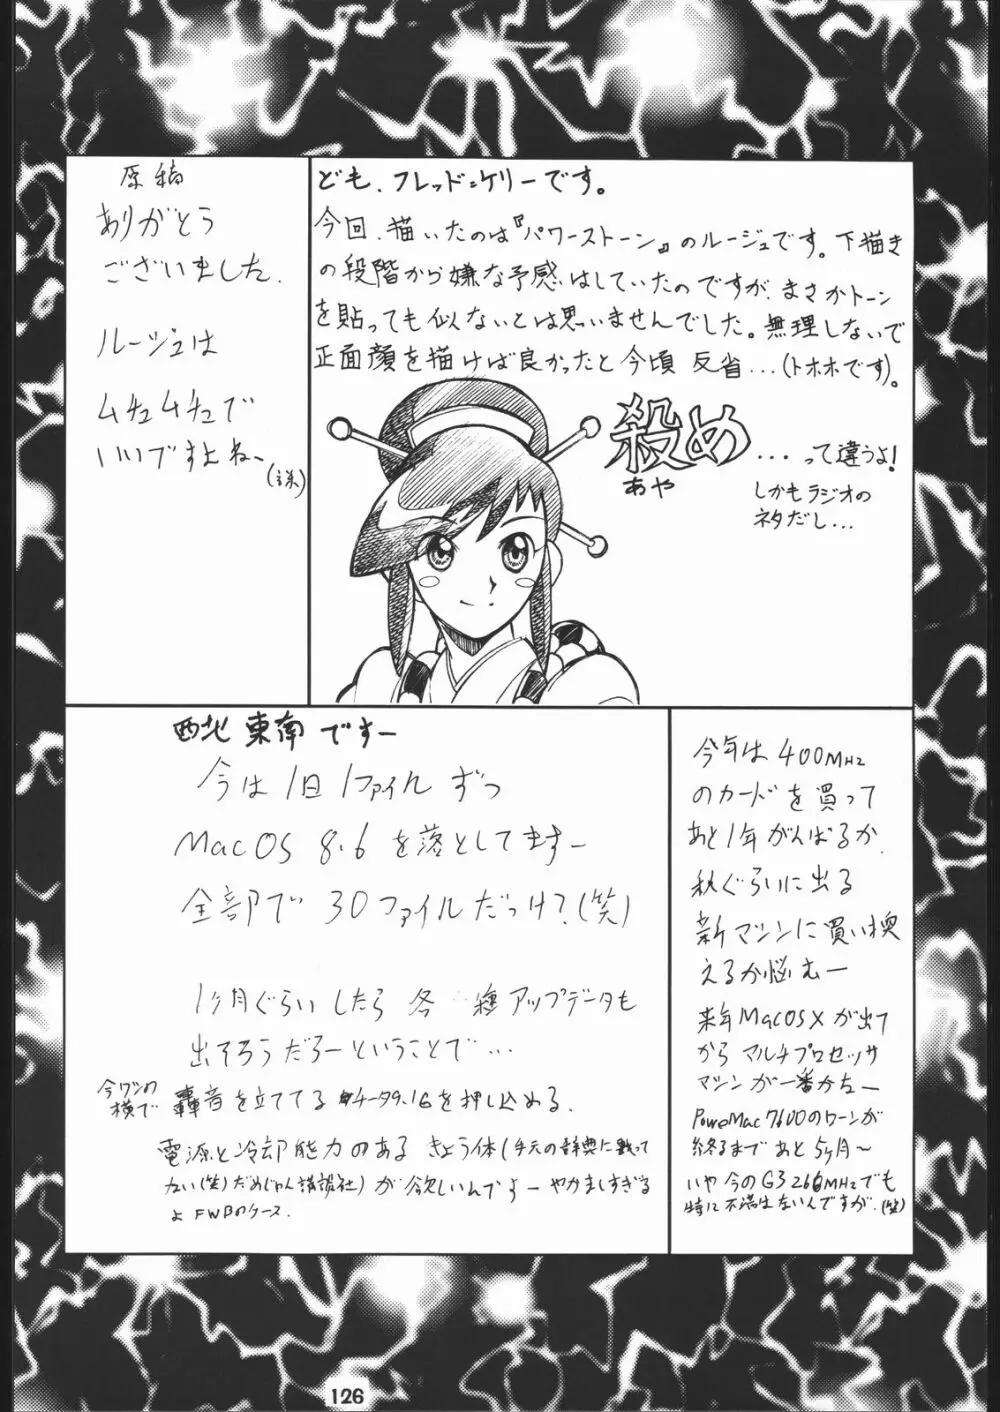 原稿
ありがとう
ございました.
ルージュは
ムチュムチュで
いいですよねー
ども、フレッド=ケリーです。
今回、描いたのは『パワーストーン』のルージュです。下描き
の段階から嫌な予感はしていたのですが、まさかトーン
を貼っても似ないとは思いませんでした。無理しないで
正面顔を描けば良かったと今頃 反省...(トホホです)。
殺め
あや
...って違うよ!
しかもラジオの
ネタだし...
西北 東南 ですー
今は1日1ファイル ずつ
MacOS 8.6 を落としてますー
全部で 30ファイルだっけ?(笑)
1ヶ月ぐらいしたら 各 種アップデータも
出そろうだろーということで...
今ワシの
横で
轟音を立ててる チータ9.1Gを押し込める.
電源と冷却能力のある きょう体(手元の辞典に載って
ない(笑)だめじゃん講談社)が欲しいんですよーやかましすぎる
よ FWBのケース.
今年は 400MHz
のカードを買って
あと1年がんばるか.
秋ぐらいに出る
新マシンに買い換
えるか悩むー
来年MacOSXが出て
から マルチプロセッサ
マシンが一番かなー
PowerMac7600のローンが
終るまで あと5ヶ月〜
いや 今のG3 266MHzでも
特に不満はないんですが.(笑)
126